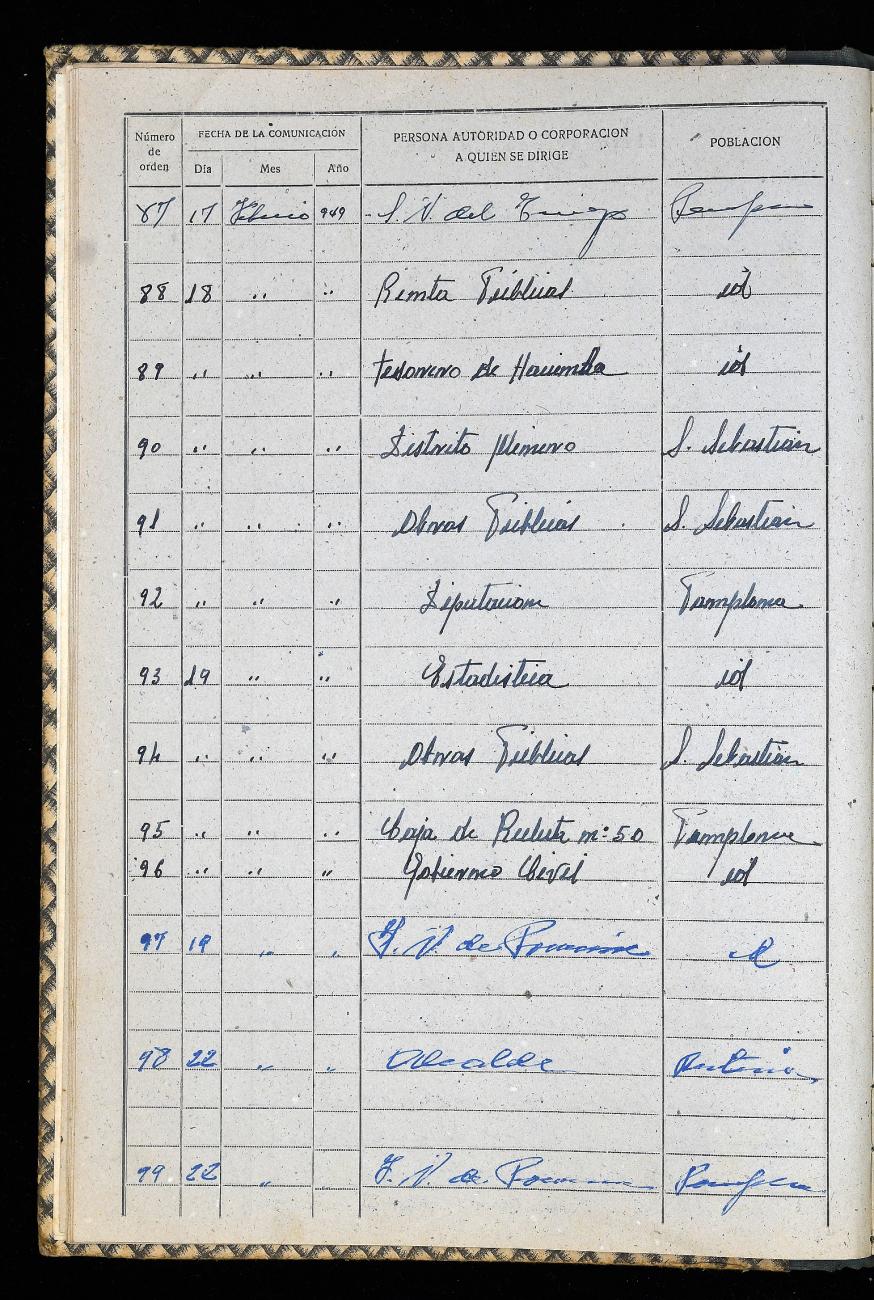 Número de orden FECHA DE LA COMUNICACIÓN PERSONA AUTORIDAD O CORPORACION A QUIEN SE DIRIGE POBLACION
Día Mes Año
87 17 Febrero 949 S. N. del Trigo Pamplona
88 18 " " Renta Públicas id
89 " " " Tesorero de Hacienda id
90 " " " Distrito Minero S. Sebastián
91 " " " Obras Públicas S. Sebastián
92 " " " Diputacion Pamplona
93 19 " " Estadistica id
94 " " " Obras Públicas S. Sebastián
95 " " " Caja de Recluta nº 50 Pamplona
96 " " " Gobierno Civil id
97 19 " " de id
98 22 " " Alcalde
99 22 " de Pamplona